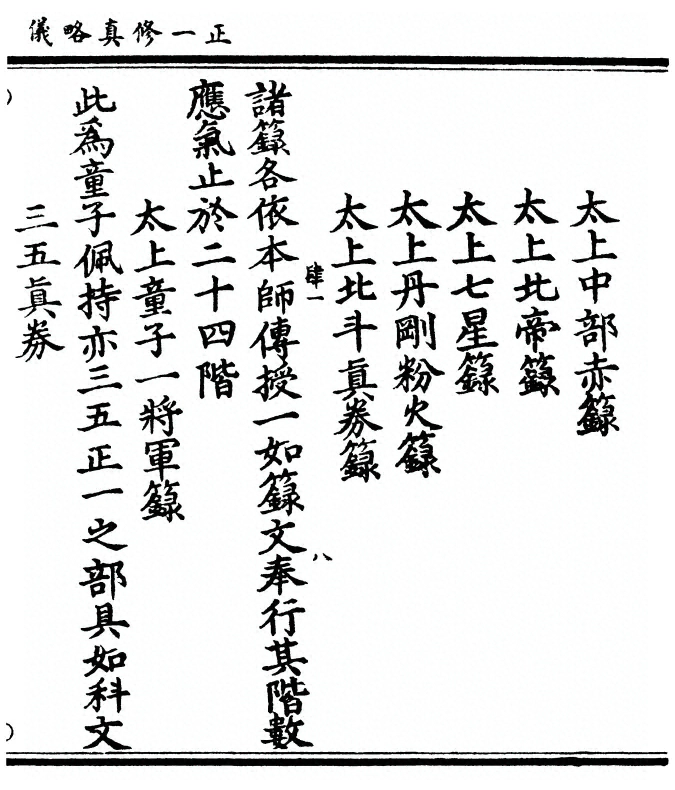 正一修真略儀
太上中部赤籙
太上北帝籙
太上七星籙
太上丹剛粉火籙
太上北斗眞券籙
肆一
八
諸籙各依本師傳授一如籙文奉行其階數
應氣止於二十四階
太上童子一將軍籙
此爲童子佩持亦三五正一之部具如科文
三五眞券